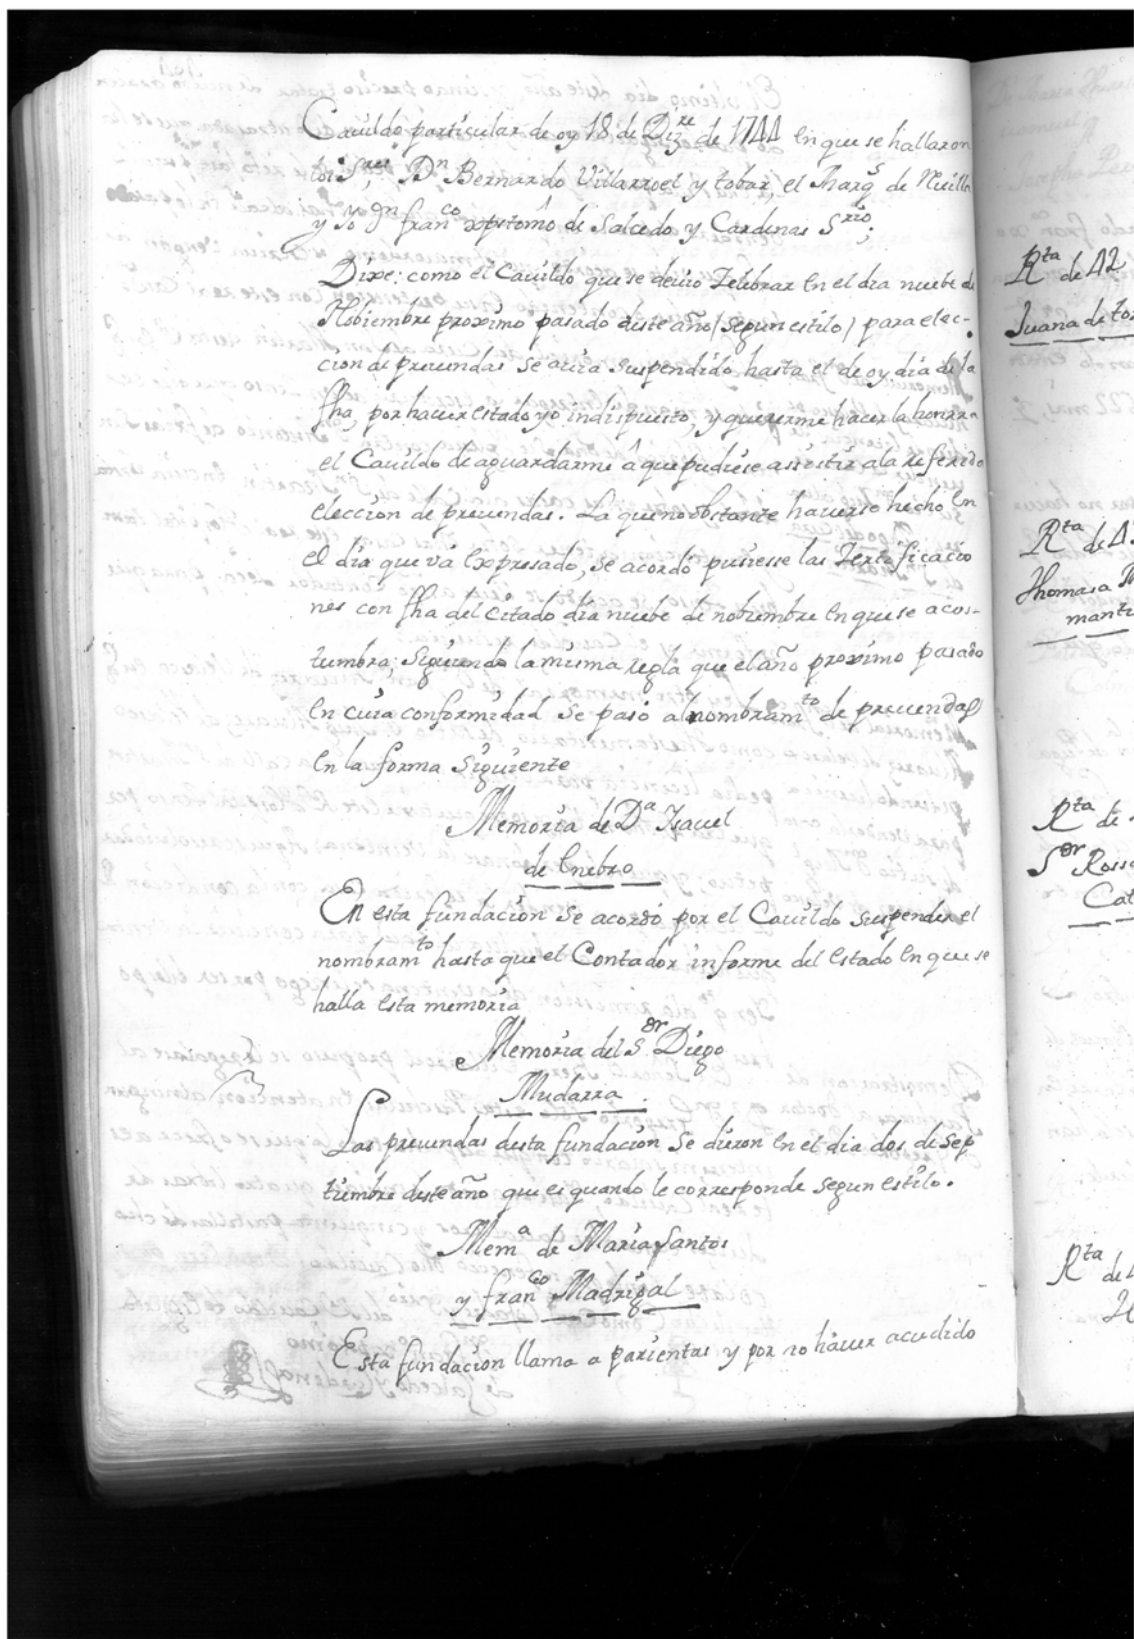 Cauildo particular de oy 18 de Diz.re de 1744 en que se hallaron
los S.res D.n Bernardo Villarroel y tobar, el Marq.s de
y Yo D.n fran.co xpstomô de Salcedo y Cardenas S.rio;
Dixe: como el Cauildo que se deuio Zelebrar en el dia nuebe de
Nobiembre proximo pasado deste año (segun estilo) para elec-
cion de preuendas se auia suspendido hasta el de oy dia de la
fha, por hauer estado yo indispuesto, y quererme hacer la honrra
el Cauildo de aguardarme â que pudiese assistir a la referido
eleccion de preuendas. La que no obstante hauerse hecho en
el dia que vá expresado, se acordó pusiesse las Zertificacio
nes con fha del citado dia nuebe de nobiembre en que se acos-
tumbra; siguiendo la misma regla que el año proximo pasado
en cuia conformidad se pasó al nombram.to de preuendas
en la forma siguiente
Memoria de D.a Ysauel
de Enebro
En esta fundacion se acordó por el Cauildo suspender el
nombram.to hasta que el Contador informe del estado en que se
halla esta memoria
Memoria del S.or Diego
Mudarra.
Las preuendas desta fundacion se dieron en el dia dos de Sep
tiembre deste año que es quando le corresponde segun estilo.
Mem.a de Maria Santos
y fran.co Madrigal
Esta fundacion llama a parientas y por no hauer acudido
R.ta de 42
Juana de
R.ta de
Thomasa
R.ta de
S.or
R.ta de